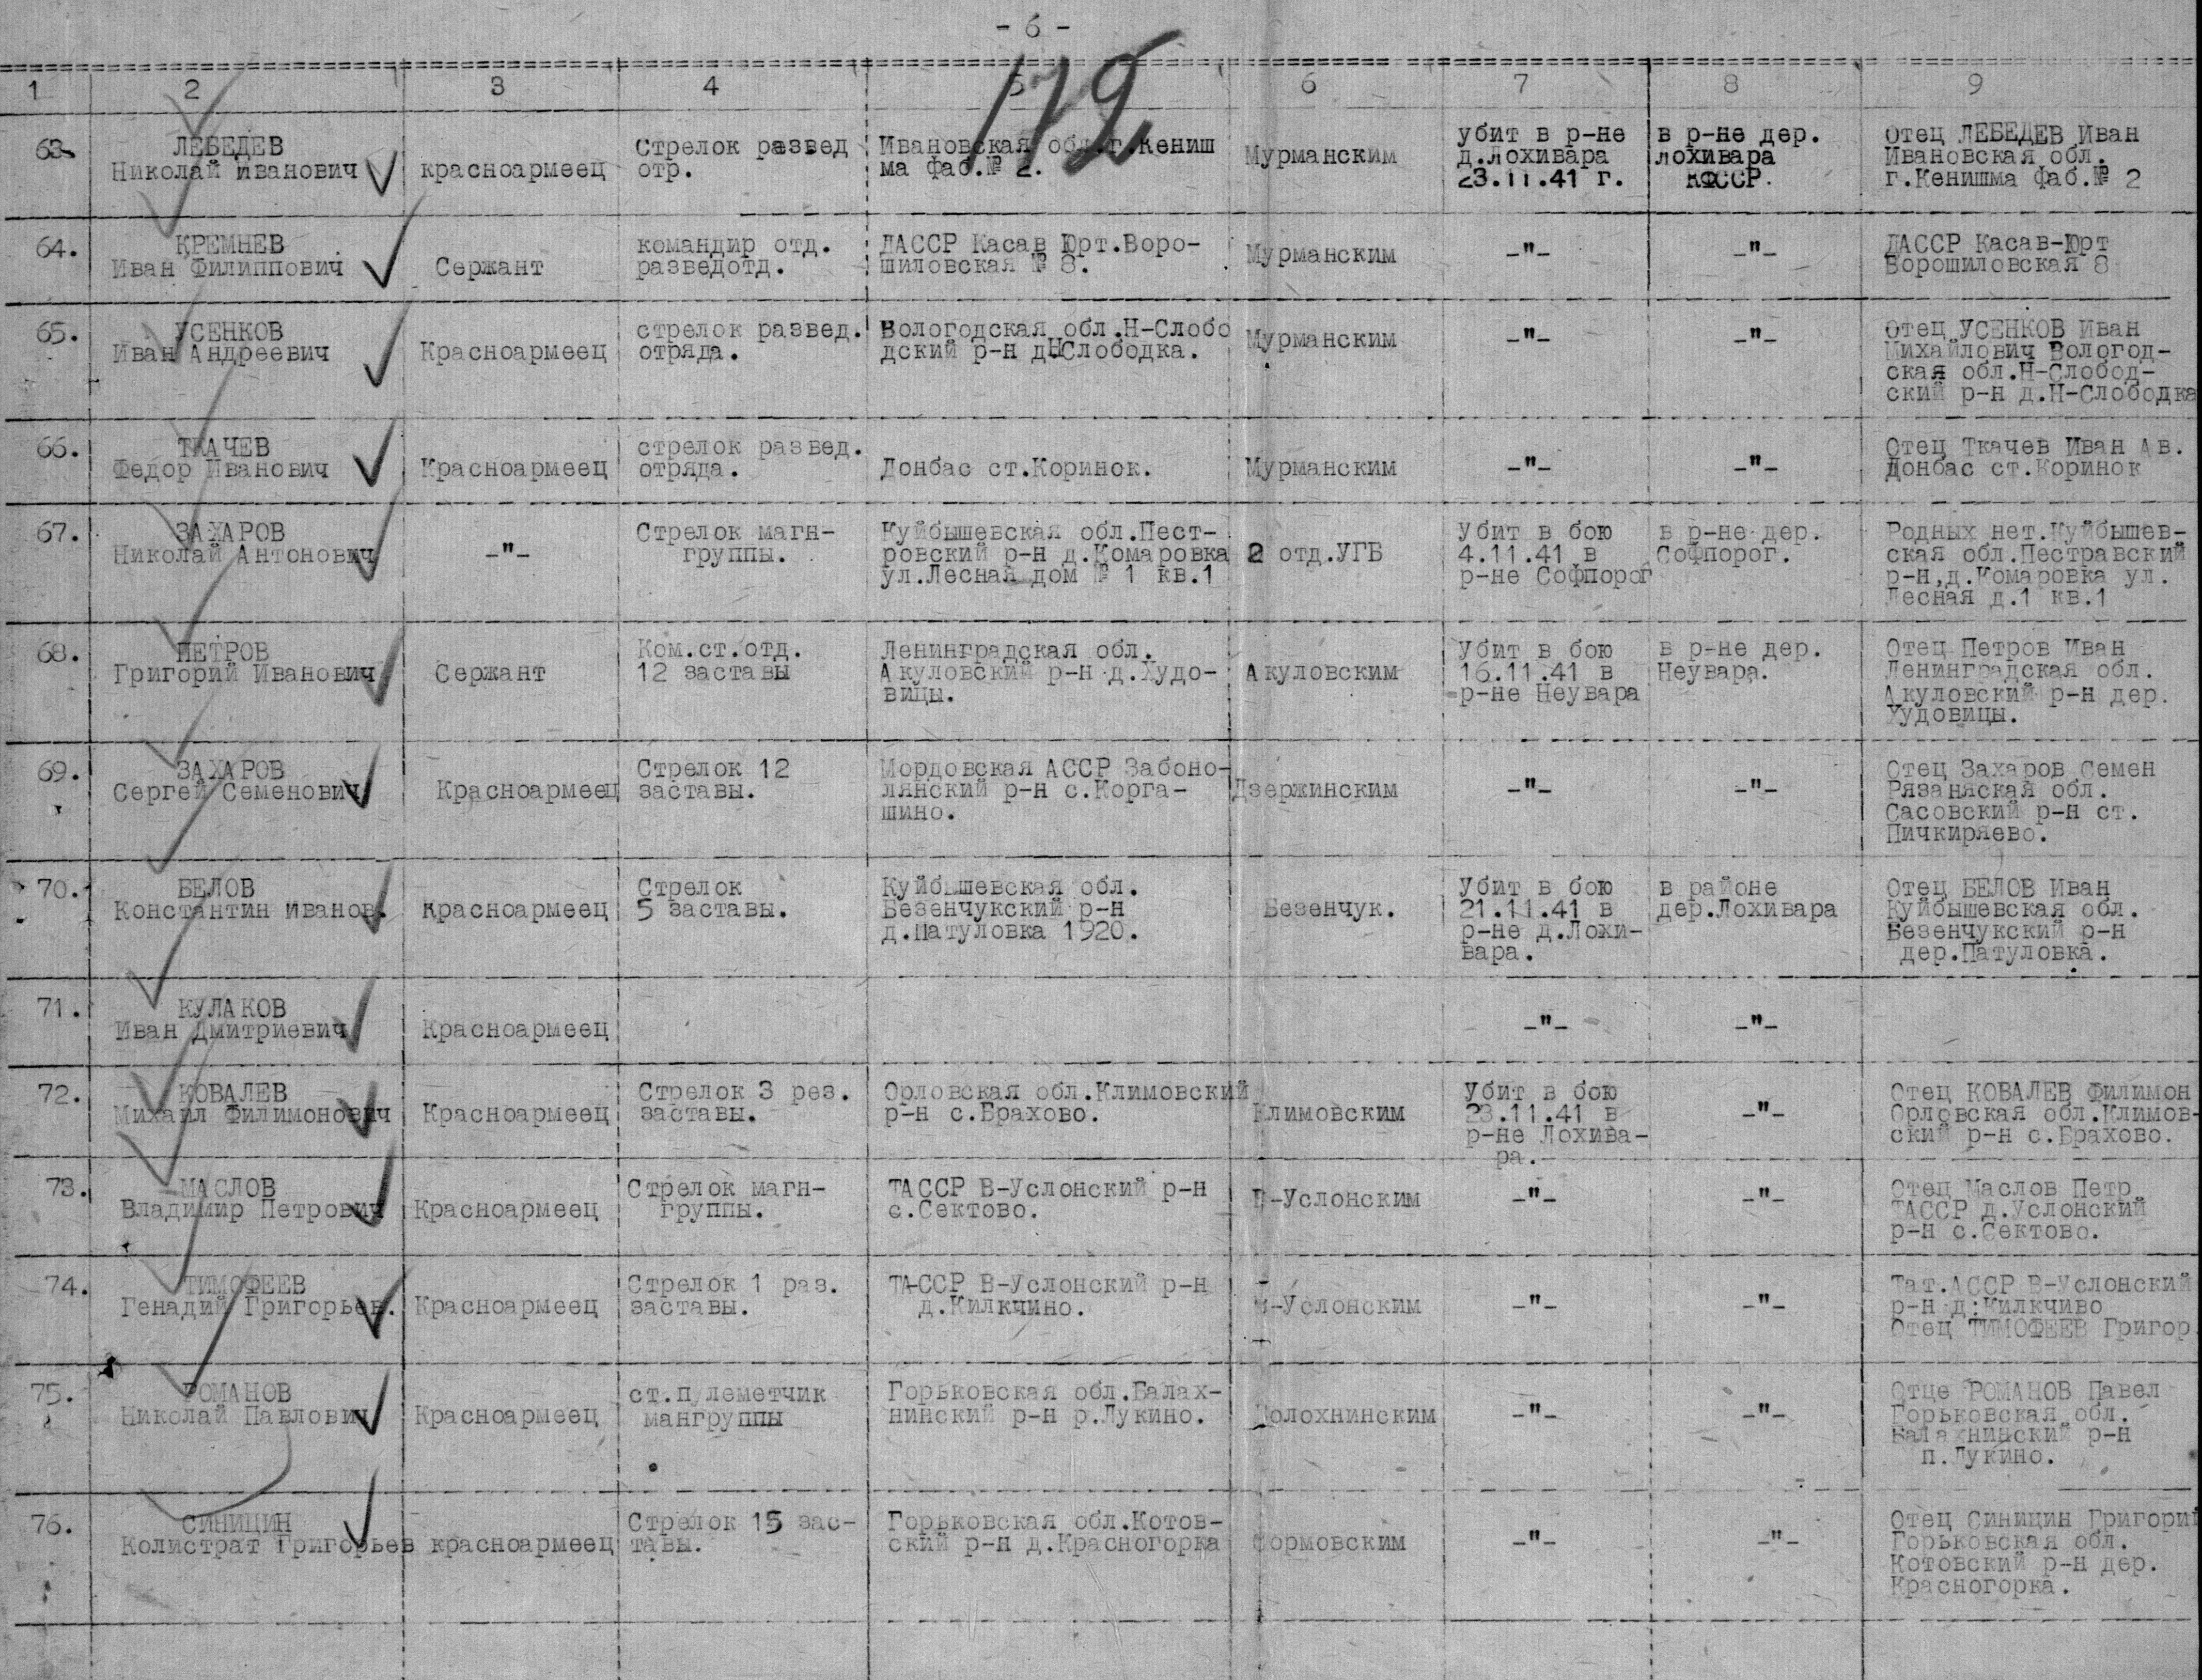 - 6 -
172
1 2 3 4 5 6 7 8 9
63.
ЛЕБЕДЕВ
Николай Иванович
красноармеец
Стрелок развед
отр.
Ивановская обл.г.Кениш
ма фаб.№ 2.
Мурманским
убит в р-не
д.лохивара
23.11.41 г.
в р-не дер.
лохивара
КФССР.
Отец ЛЕБЕДЕВ Иван
Ивановская обл.
г.Кенишма фаб.№ 2
64.
КРЕМНЕВ
Иван Филиппович
Сержант
командир отд.
разведотд.
ДАССР Касав Юрт.Воро-
шиловская № 8.
Мурманским
-"-
-"-
ДАССР Касав-Юрт
Ворошиловская 8
65.
УСЕНКОВ
Иван Андреевич
Красноармеец
стрелок развед.
отряда.
Вологодская обл.Н-Слобо
дский р-н дНСлободка.
Мурманским
-"-
-"-
Отец УСЕНКОВ Иван
Михайлович Вологод-
ская обл.Н-Слобод-
ский р-н д.Н-Слободка
66.
ТКАЧЕВ
Федор Иванович
Красноармеец
стрелок развед.
отряда.
Донбас ст.Коринок.
Мурманским
-"-
-"-
Отец Ткачев Иван Ав.
Донбас ст.Коринок
67.
ЗАХАРОВ
Николай Антонович
-"-
Стрелок магн-
группы.
Куйбышевская обл.Пест-
ровский р-н д.Комаровка
ул.Лесная дом № 1 кв.1
2 отд.УГБ
Убит в бою
4.11.41 в
р-не Софпорог
в р-не дер.
Софпорог.
Родных нет.Куйбышев-
ская обл.Пестравский
р-н,д.Комаровка ул.
Лесная д.1 кв.1
68.
ПЕТРОВ
Григорий Иванович
Сержант
Ком.ст.отд.
12 заставы
Ленинградская обл.
Акуловский р-н д.Худо-
вицы.
Акуловским
Убит в бою
16.11.41 в
р-не Неувара
в р-не дер.
Неувара.
Отец Петров Иван
Ленинградская обл.
Акуловский р-н дер.
Худовицы.
69.
ЗАХАРОВ
Сергей Семенович
Красноармеец
Стрелок 12
заставы.
Мордовская АССР Забоно-
лянский р-н с.Корга-
шино.
Дзержинским
-"-
-"-
Отец Захаров Семен
Рязаняская обл.
Сасовский р-н ст.
Пичкиряево.
70.
БЕЛОВ
Константин Иванов.
Красноармеец
Стрелок
5 заставы.
Куйбышевская обл.
Безенчукский р-н
д.Патуловка 1920.
Безенчук.
Убит в бою
21.11.41 в
р-не д.Лохи-
вара.
в районе
дер.Лохивара
Отец БЕЛОВ Иван
Куйбышевская обл.
Безенчукский р-н
дер.Патуловка.
71.
КУЛАКОВ
Иван Дмитриевич
Красноармеец
-"-
-"-
72.
КОВАЛЕВ
Михаил Филимонович
Красноармеец
Стрелок 3 рез.
заставы.
Орловская обл.Климовский
р-н с.Брахово.
Климовским
Убит в бою
23.11.41 в
р-не Лохива-
ра.
-"-
Отец КОВАЛЕВ Филимон
Орловская обл.Климов-
ский р-н с.Брахово.
73.
МАСЛОВ
Владимир Петрович
Красноармеец
Стрелок магн-
группы.
ТАССР В-Услонский р-н
с.Сектово.
В-Услонским
-"-
-"-
Отец Маслов Петр
ТАССР д.Услонский
р-н с.Сектово.
74.
ТИМОФЕЕВ
Генадий Григорьев.
Красноармеец
Стрелок 1 раз.
заставы.
ТАССР В-Услонский р-н
д.Килкчино.
В-Услонским
-"-
-"-
Тат.АССР В-Услонский
р-н д.Килкчиво
Отец ТИМОФЕЕВ Григор
75.
РОМАНОВ
Николай Павлович
Красноармеец
ст.пулеметчик
мангруппы
Горьковская обл.Балах-
нинский р-н р.Лукино.
Болохнинским
-"-
-"-
Отце РОМАНОВ Павел
Горьковская обл.
Балахнинский р-н
п.Лукино.
76.
СИНИЦИН
Колистрат Григорьев
красноармеец
Стрелок 15 зас-
тавы.
Горьковская обл.Котов-
ский р-н д.Красногорка
Сормовским
-"-
-"-
Отец Синицин Григорий
Горьковская обл.
Котовский р-н дер.
Красногорка.